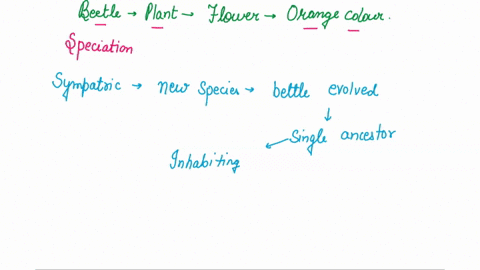 Beetle → Plant → Flower → Orange colour.
Speciation
Sympatric → new Species → bettle evolved
↓
Single ancestor
←
Inhabiting